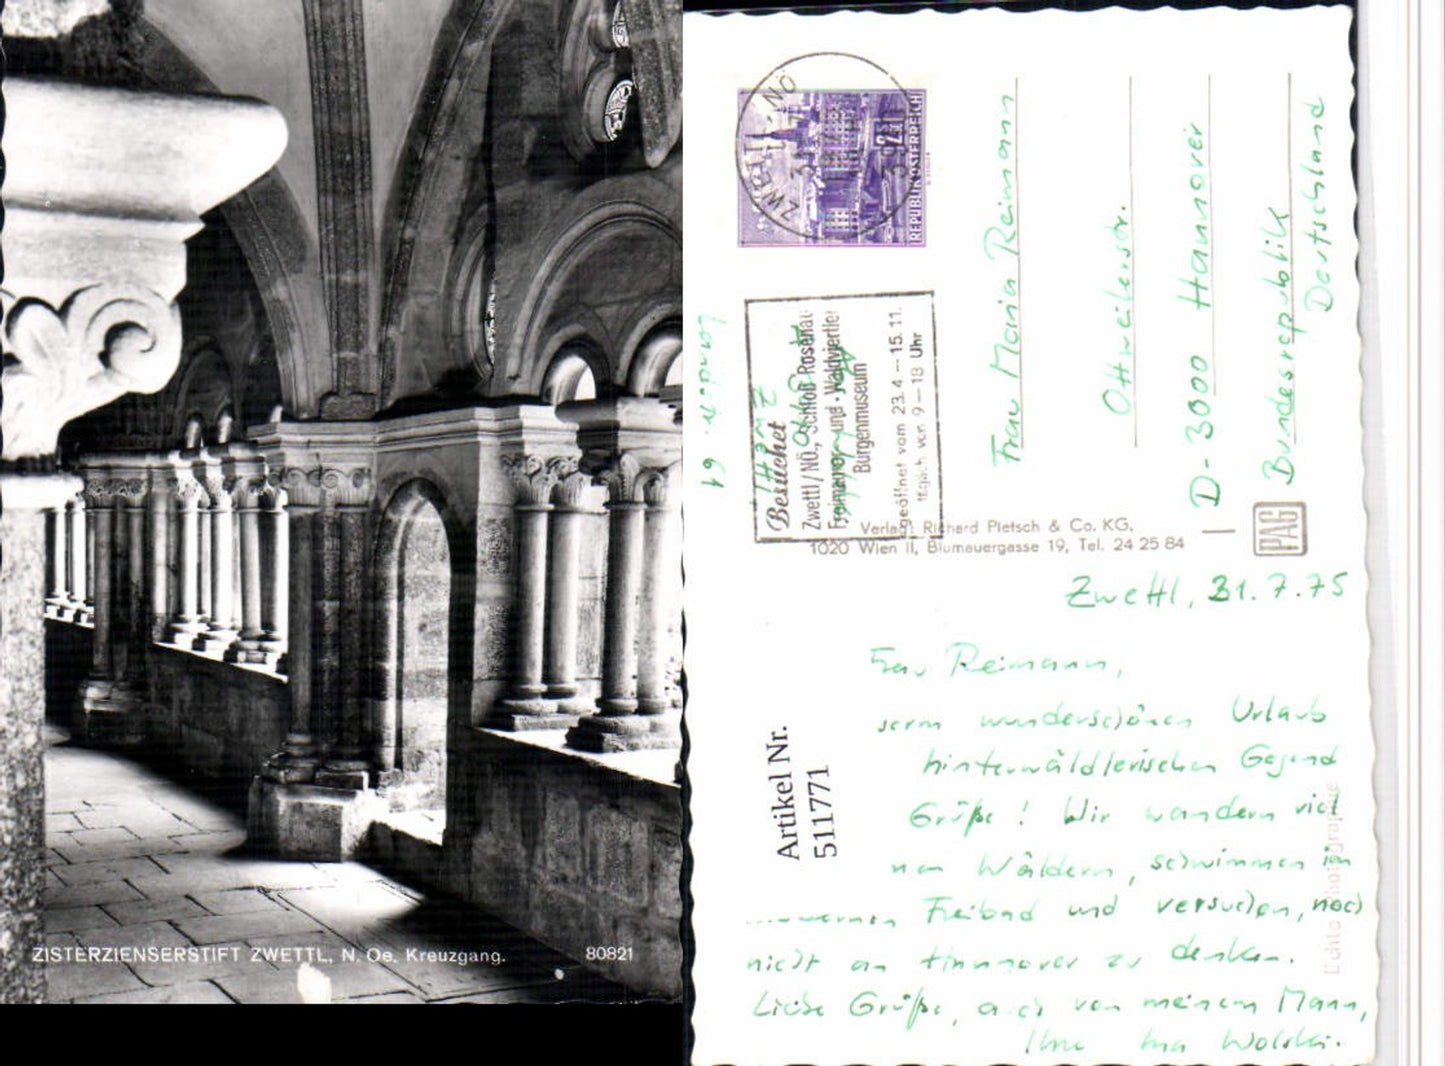 ZISTERZIENSERSTIFT ZWETTL, N. Oe. Kreuzgang. 80821
ZWETTL-NÖ
REPUBLIK ÖSTERREICH
Besuchet
Zwettl/NÖ, Schloß Rosenau
Freimaurer- und Waldviertler
Burgenmuseum
geöffnet vom 23.4.—15.11.
täglich von 9—18 Uhr
Landstr. 61
Frau Maria Reimann
Ottweilerstr.
D-3000 Hannover
Bundesrepublik
Deutschland
Verlag: Richard Pietsch & Co. KG.
1020 Wien II, Blumauergasse 19, Tel. 24 25 84
PAG
Artikel Nr.
511771
Zwettl, 31.7.75
Frau Reimann,
wunderschönen Urlaub
hinterwäldlerischen Gegend
Grüße! Wir wandern viel
Wäldern, schwimmen im
Freibad und versuchen, noch
nicht an Hannover zu denken.
Liebe Grüße, auch von meinem Mann,
Ihre Wolski.